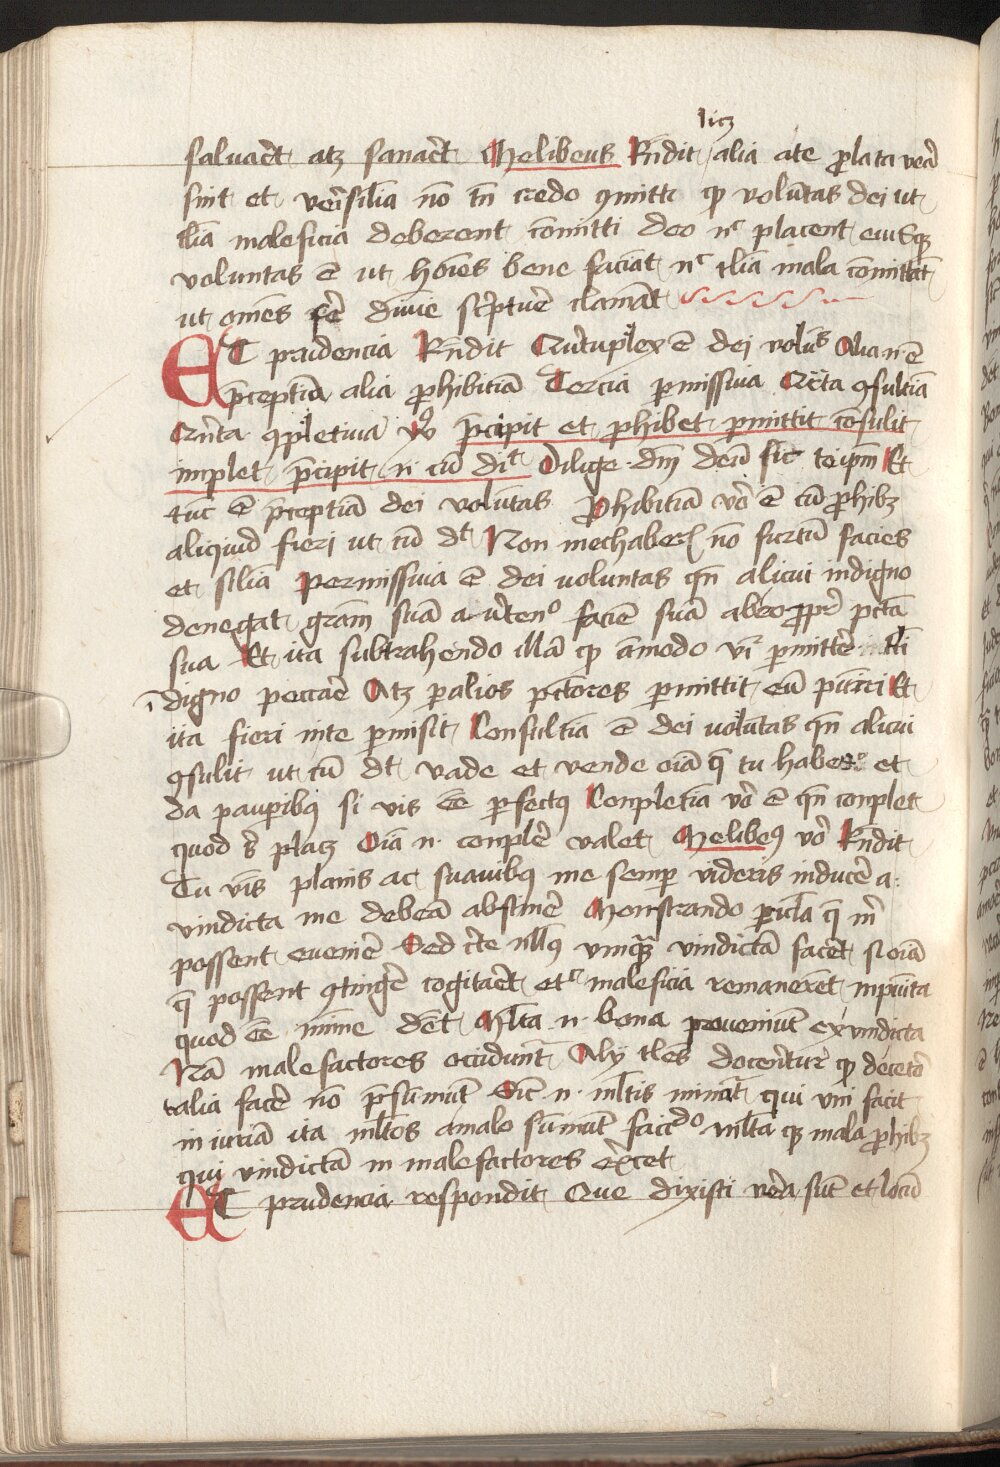 licz
saluaret atz sanaret Melibeus Rñdit alia a te ꝓlata vera
sint et verisilia nō tñ credo ꝯmitti ꝙ volūtas dei ut
tlia maleficia deberent cōmitti deo nc placent eiusqꝫ
voluntas ē ut hoīes bene faciāt nc tlia mala cōmittāt
ut om̄es fere diuie scpture clamāt
ET prudencia Rñdit Quītuplex ē dei volūs Alia n̄ ē
p̄ceptia alia ꝓhibitia Tercia ꝑmissiua Qrta ꝯsultia
Qñta ꝯpletiua Vo p̄cipit et ꝓhibet ꝑmittit cōsulit
implet p̄cipit n̄ cū dīt Dilige dm̄ deū sic teipm̄ Et
tūc ē p̄ceptia dei voluntas Prohibitia vo ē cū ꝓhibꝫ
aliquid fieri ut cū dt Non mechaberꝭ nō furtū facies
et silia Permissiua ē dei voluntas qn̄ alicui indigno
denegat grām suā auerten faciē suā ab eo ꝓpr pctā
sua Et ita subtrahendo illā ꝙ āmodo vr ꝑmittere illi
īdigno peccare Atz ꝑ alios pctores ꝑmittit eū puniri Et
ita fieri in te ꝑmisit Consultia ē dei voluntas qn̄ alicui
ꝯsulit ut cū dt vade et vende oīa q̄ tu habes et
da pauꝑibꝰ si vis eē ꝑfectꝰ Conpletia vo ē qn̄ conplet
quod s placz Oīa n̄ conplere valet Melibeꝰ vo Rñdit
Tu vīs planis ac suauibꝰ me semꝑ videris inducere a
vindicta me debeā abstinere Monstrando ꝑicla q̄ m
possent euenire Sed certe nllꝰ vmqꝫ vindictā faceret si oīa
q̄ possent ꝯtingere cogitaret etc maleficia remanerēt inpunita
quod eē mīme deret Mlta n̄ bona proueniūt ex vindicta
Nā malefactores ocidunt Aly tles docentur ꝙ decetero
talia facere nō p̄sumūt Sic n̄ mltis minat qui vni facit
iniuriā ita mltos a malo sumūt faicedo mlta qꝫ mala ꝓhibꝫ
qui vindictā in malefactores exercet
ET prudencia respondit Que dixisti vera sūt et locū